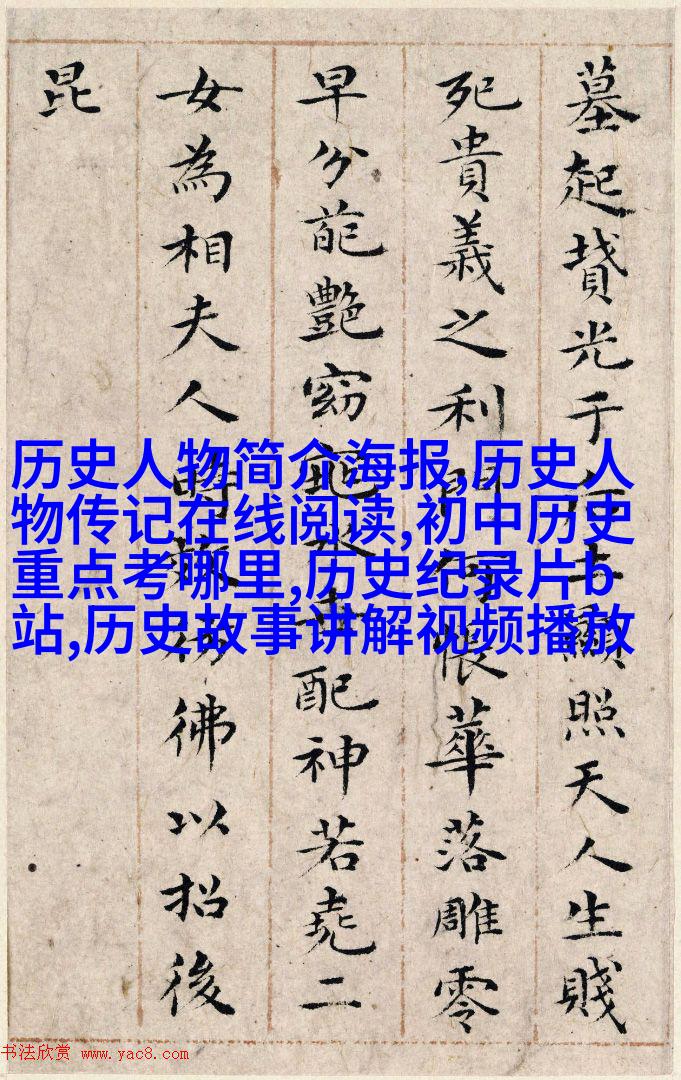 墓起墳光于后土顯照天人生賤
死貴義之利門何悵華落雕零
早分葩艷窈窕永世配神若堯二
女為相夫人時效彷彿以招後
昆
历史人物简介海报,历史人
物传记在线阅读,初中历史
重点考哪里,历史纪录片b
站,历史故事讲解视频播放
书法欣赏 www.yac8.com